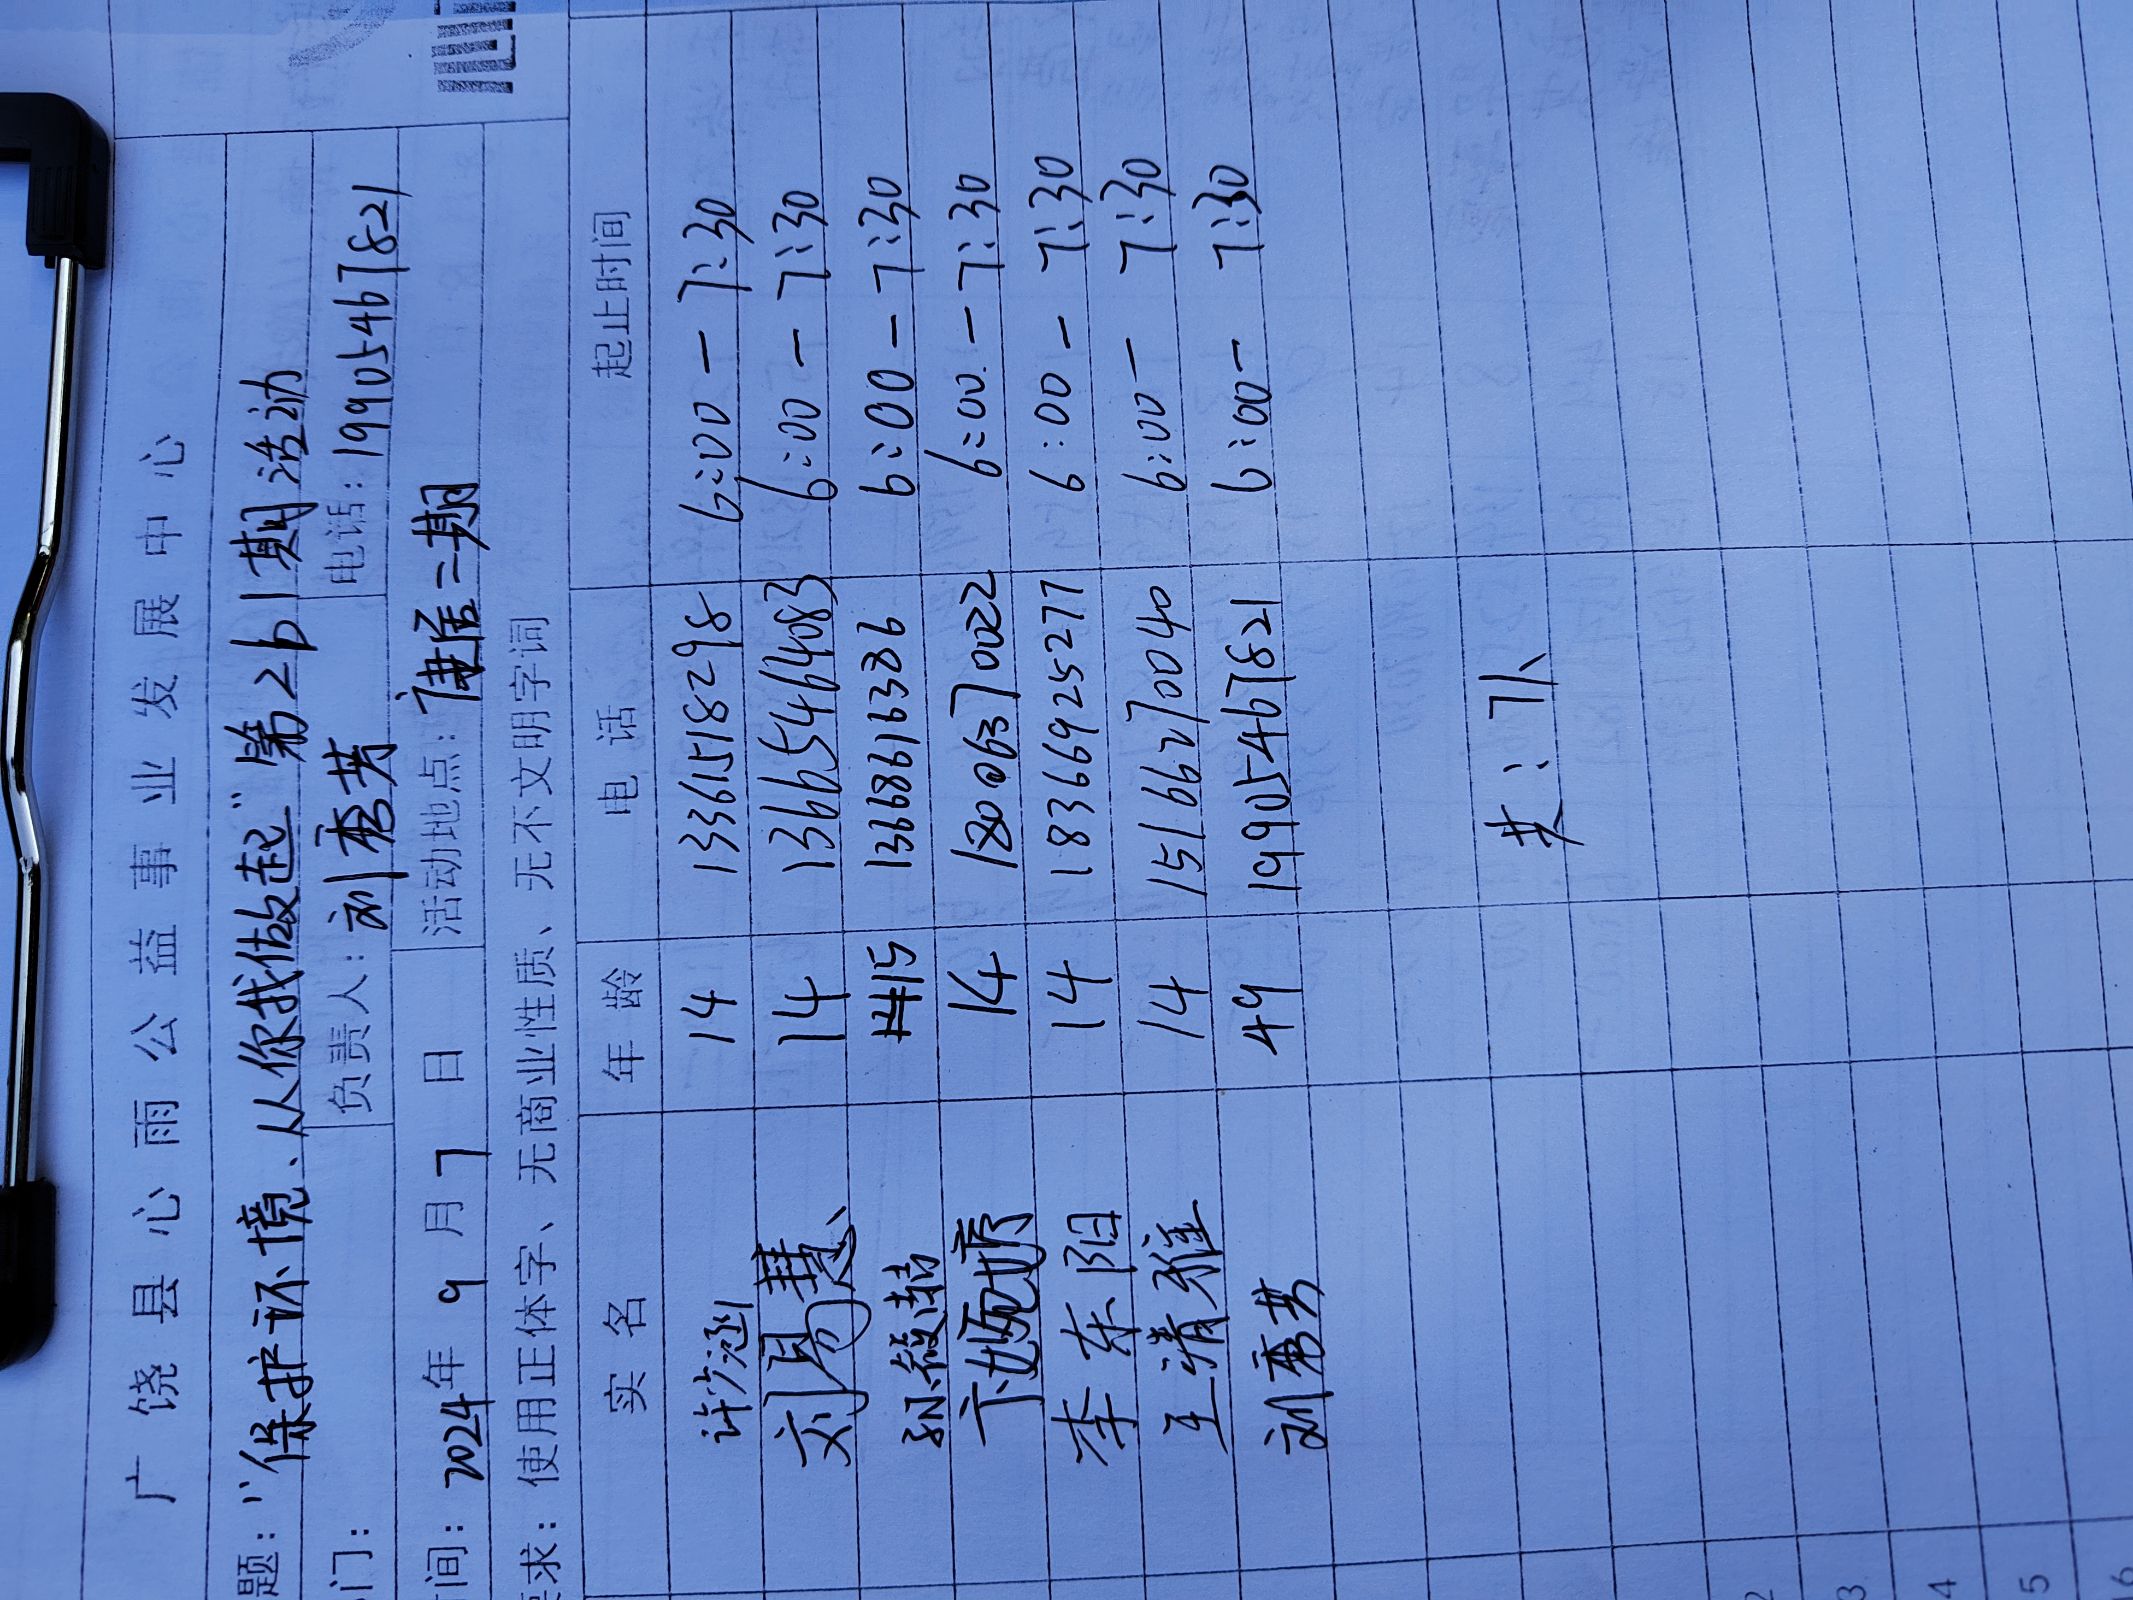 广饶县心雨公益事业发展中心
题："保护环境、从你我做起"第261期活动
门： 负责人：刘秀芳 电话：19905467821
间：2024年9月7日 活动地点：康居二期
要求：使用正体字、无商业性质、无不文明字词
实名 年龄 电话 起止时间
许涵 14 13361518298 6:00-7:30
刘易慧 14 13665464083 6:00-7:30
孙筱喆 15 13668616386 6:00-7:30
14 18006370022 6:00-7:30
李东阳 14 18366925277 6:00-7:30
王清雅 14 15166270040 6:00-7:30
刘秀芳 49 19905467821 6:00-7:30
共：7人
2
3
4
5
6